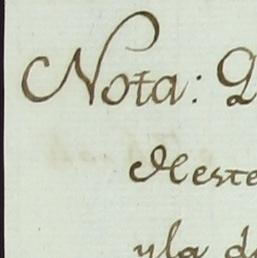 Nota: Q
Meste
y la d